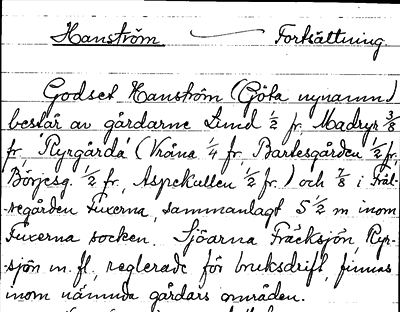 Hanström — Fortsättning
Godset Hanström (Göta nynamn)
består av gårdarne Lund 1/2 fr, Madryr 3/8
fr, Ryrgårda' (Kråna 1/4 fr, Bartesgården 1/2 fr,
Börjesg. 1/2 fr, Aspekullen 1/2 fr.) och 7/8 i Fräl-
segården Fuxerna, sammanlagt 5 1/2 m inom
Fuxerna socken. Sjöarna Fräcksjön, Ryr-
sjön m. fl, reglerade för bruksdrift, finnas
inom nämnda gårdars områden.